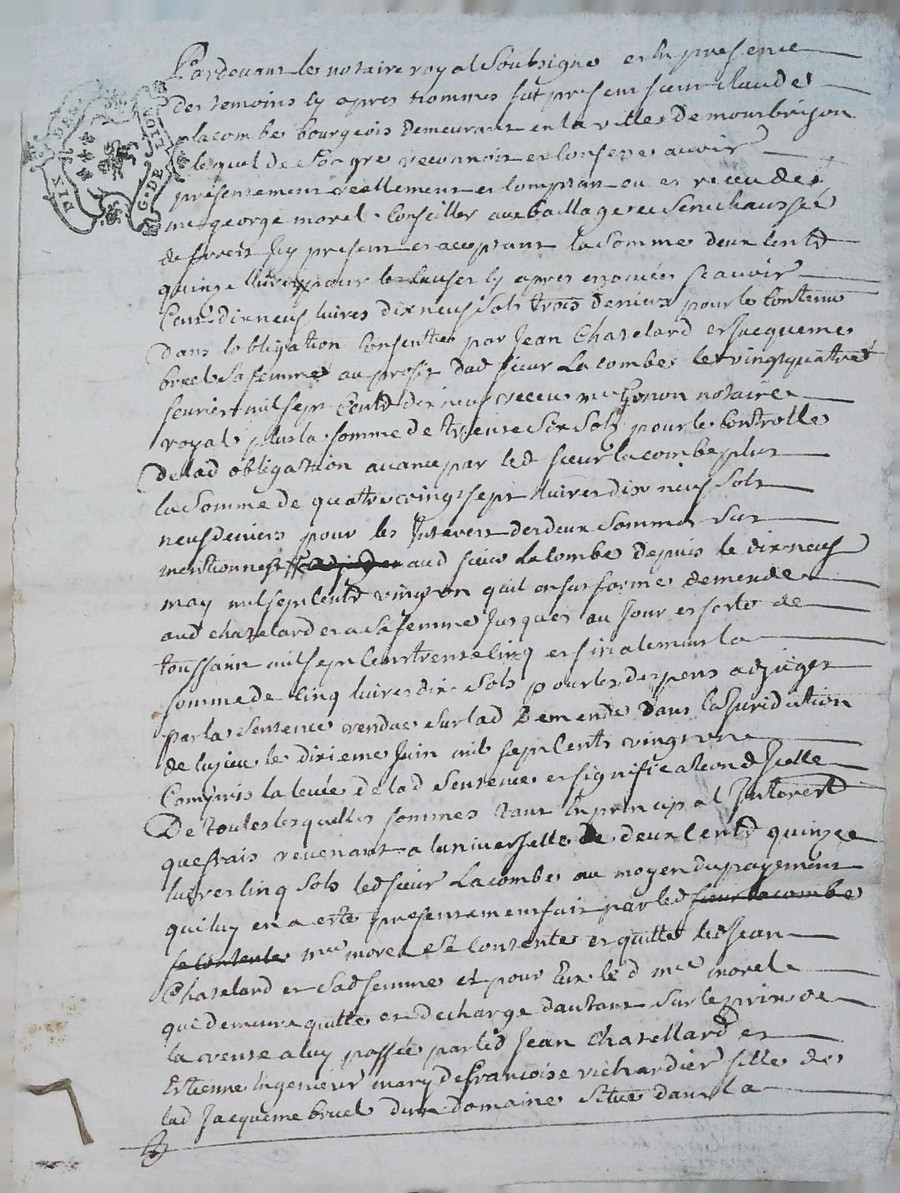 Pardevant les notaire royal Soubsigne et en presence
des temoins cy apres nommes fut present sieur claude
lacombe bourgeois demeurant en la ville de monbrison
lequel de son gre reconnoit et confesse avoir
presentement reellement et comptant eu et receu de
me george morel Conseiller au baillage et Senechaussée
de forest Icy present et acceptant la somme deux centz
quinze livres pour les causes cy apres enoncées scavoir
Cent dix neuf livres dix neuf sols trois deniers pour le contenu
dans lobligation consentie par Jean Chatelard et Jacqueme
bruel sa femme au profit dud sieur Lacombe le vingt quatre
fevrier mil sept Centz dix neuf receu me Gonon notaire
royal plus la somme de trente six sols pour le controlle
de lad obligation avance par led sieur lacombe plus
la somme de quatre vingt sept livres dix neuf sols
neuf deniers pour les Interest desdeux sommes sus
mentionnes aud sieur Lacombe depuis le dix neuf
may mil sept centz vingt un quil en fut forme demende
aud chatelard et a sa femme Jusques au Jour et feste de
toussaint mil sept cent trente cinq et finalement la
somme de cinq livres dix sols pour les depens adjuges
par la sentence rendue sur lad Demende dans la Juridiction
de lusieu le dixieme Juin mil sept cents vingt un
Compris la levée de lad sentence et signification dJcelle
De toutes lesquelles sommes tant en principal Interest
que frais revenant a luniverselle de deux centz quinze
livres cinq sols led sieur Lacombe au moyen du payement
qui luy en a este presentement fait par led sieur lacombe
se contente me morel se contente et quitte led Jean
Chatelard et sad femme et pour Eux led me morel
que demeure quitte et decharge dautant sur le prix de
la vente a luy passée par led Jean Chatellard et
Estienne Ingenieur mary de francoise richardier fille de
lad Jacqueme bruel dun domaine situe dans la